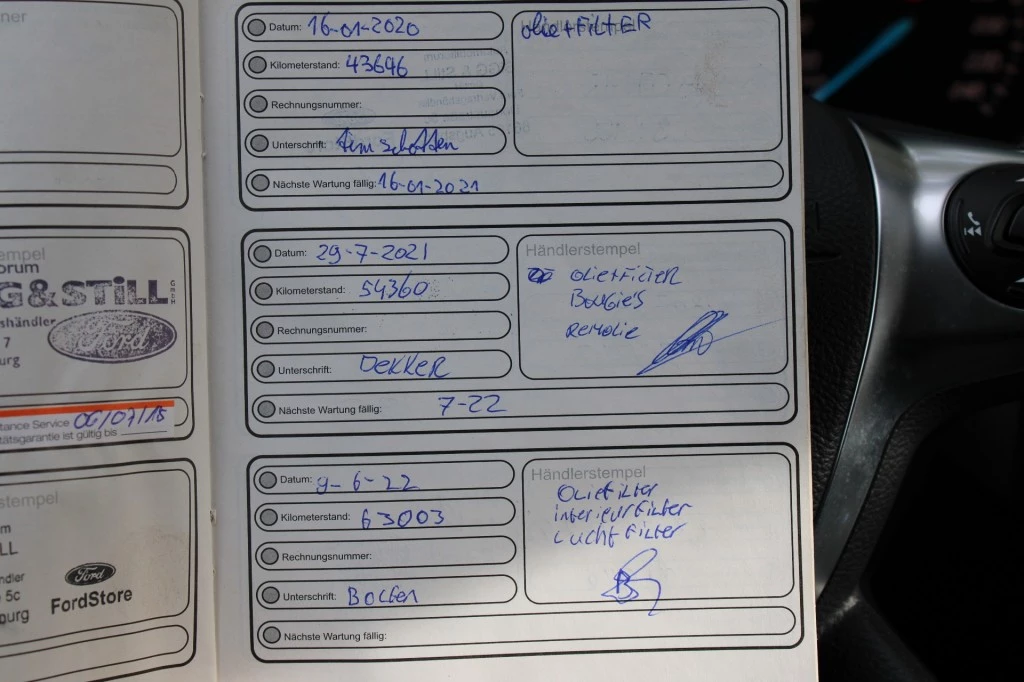 ner
Datum: 16-01-2020
Kilometerstand: 43646
Rechnungsnummer:
Unterschrift:
Nächste Wartung fällig: 16-01-2021
olie+FILTER
stempel
orum
G&STiLL GMBH
shändler
7
urg
Ford
tance Service 06/07/18
tätsgarantie ist gültig bis
Datum: 29-7-2021
Kilometerstand: 54360
Rechnungsnummer:
Unterschrift: DEKKER
Nächste Wartung fällig: 7-22
Händlerstempel
OLIE+FILTER
BOUGIE'S
REMOLIE
stempel
m
LL
ndler
5c
burg
Ford
FordStore
Datum: 9-6-22
Kilometerstand: 63003
Rechnungsnummer:
Unterschrift:
Nächste Wartung fällig:
Händlerstempel
OLIEFILTER
interieurFilter
LuchtFilter